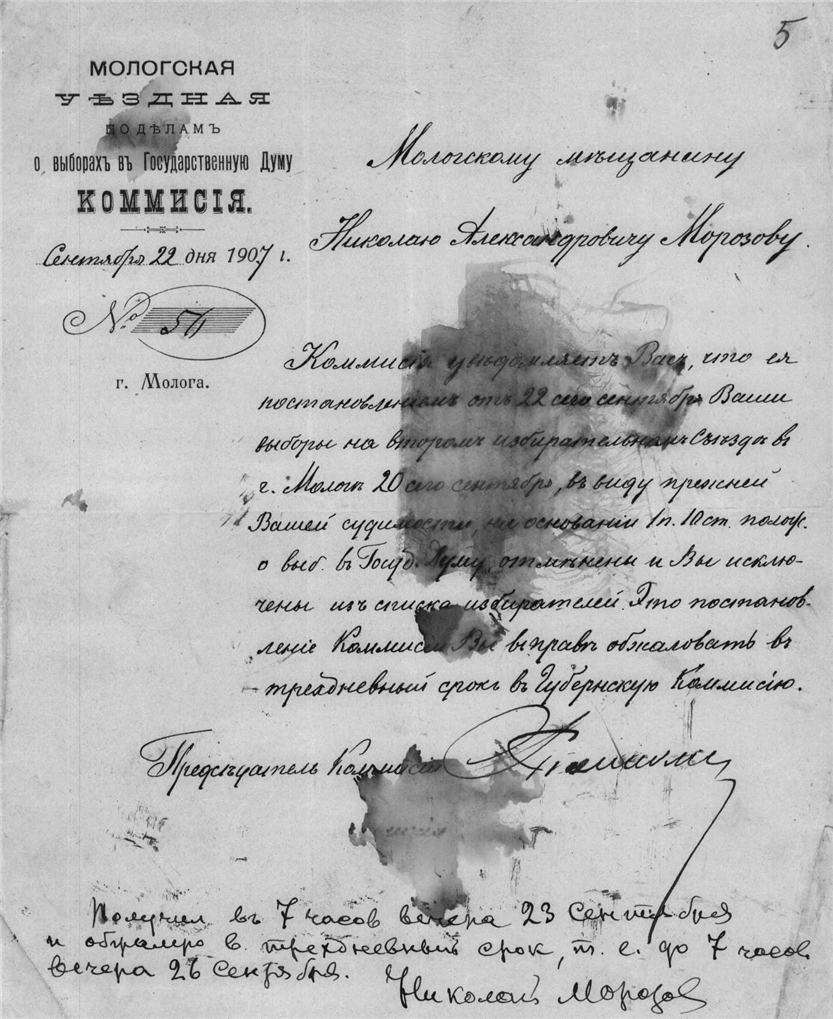 5
МОЛОГСКАЯ
УѢЗДНАЯ
ПО ДѢЛАМЪ
О ВЫБОРАХЪ ВЪ ГОСУДАРСТВЕННУЮ ДУМУ
КОММИСІЯ.
Сентября 22 дня 1907 г.
№ 56
г. Молога.
Мологскому мѣщанину
Николаю Александровичу Морозову.
Коммисія увѣдомляетъ Васъ, что ея
постановленіемъ отъ 22 сего сентября Ваши
выборы на второмъ избирательномъ съѣздѣ въ
г. Мологѣ 20 сего сентября, въ виду прежней
Вашей судимости, на основаніи 1 п. 10 ст. полож.
о выб. въ Госуд. Думу, отмѣнены и Вы исклю-
чены изъ списка избирателей. Это постанов-
леніе Коммисіи Вы вправѣ обжаловать въ
трехдневный срокъ въ Губернскую Коммисію.
Предсѣдатель Коммисіи
Получил въ 7 часов вечера 23 Сентября
и обжалую в трехдневный срок, т. е. до 7 часов
вечера 26 сентября.
Николай Морозов